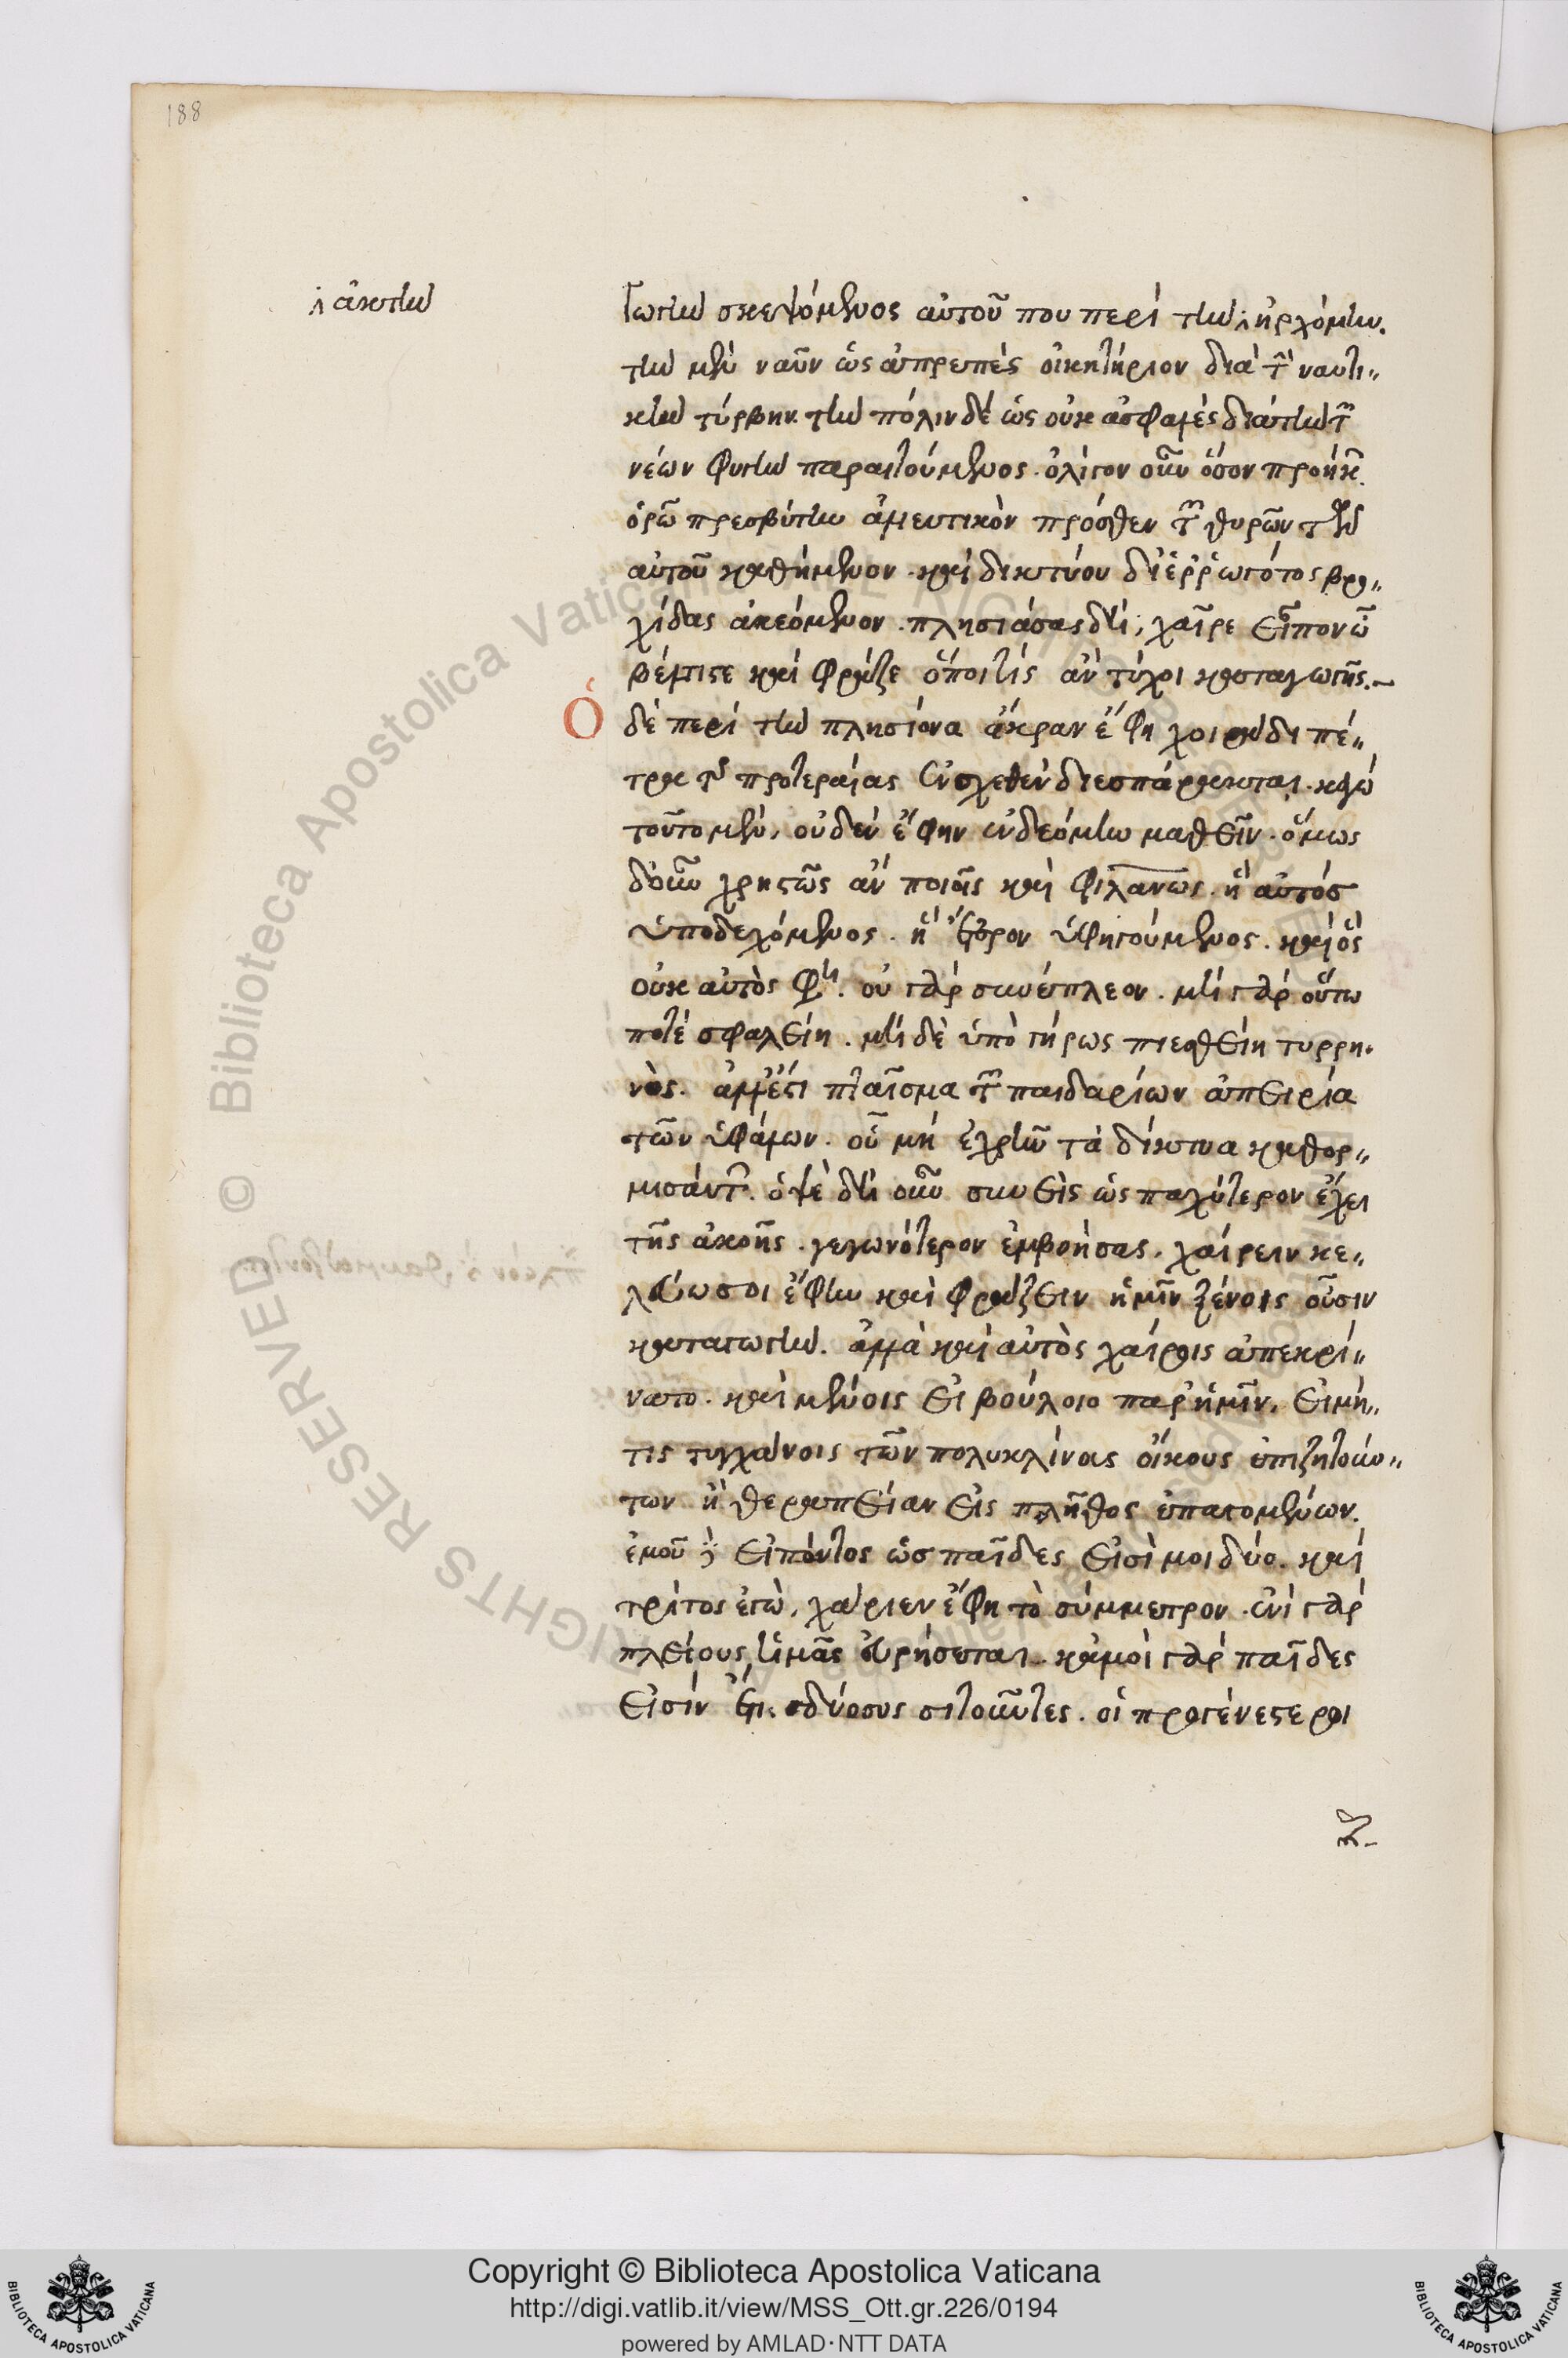 188
ἀκτὴν
γωγὴν σκεψόμενος αὐτοῦ που περὶ τὴν ἠρχόμην.
τὴν μὲν ναῦν ὡς ἀπρεπὲς οἰκητήριον διὰ τὴν ναυτι„
κὴν τύρβην. τὴν πόλιν δὲ ὡς οὐκ ἀσφαλὲς διὰ τὴν τῶν
νέων φυγὴν παραιτούμενος. ὀλίγον οὖν ὅσον προῆκ
ὁρῶ πρεσβύτην ἁλιευτικὸν πρόσθεν τῶν θυρῶν τῶν
αὐτοῦ καθήμενον. καὶ δικτύου διερρωγότος βρο„
χίδας ἀκεόμενον. πλησιάσας δὴ, χαῖρε εἶπον ὦ
βέλτιστε καὶ φράζε ὅποι τίς ἂν τύχοι καταγωγῆς.
Ὁ δὲ περὶ τὴν πλησίον ἄκραν ἔφη χοιράδι πέ„
τρα τῆς προτεραίας ἐνσχεθὲν διεσπάρακται. κἀγὼ
τοῦτο μὲν, οὐδὲν ἔφην ἐνδεόμην μαθεῖν. ὅμως
δ' οὖν χρηστῶς ἂν ποιοῖς καὶ φιλανως. ἢ αὐτὸς
ὑποδεχόμενος. ἢ ἕτερον ὑφηγούμενος. καὶ ὃς
οὐκ αὐτὸς φη. οὐ γὰρ συνέπλεον. μὴ γὰρ οὕτω
ποτὲ σφαλείη. μὴ δὲ ὑπὸ γήρως πιεσθείη τυρρη„
νός. ἀλλ' ἔστι πταῖσμα τῶν παιδαρίων ἀπειρίᾳ
τῶν ὑφάλων. οὗ μὴ ἐχρῆν τὰ δίκτυα καθορ„
μισάντων. ὀψὲ δὴ οὖν συνεὶς ὡς παχύτερον ἔχει
τῆς ἀκοῆς. γεγωνότερον ἐμβοήσας. χαίρειν κε„
λεύω σοι ἔφην καὶ φράζειν ἡμῖν ξένοις οὖσιν
καταγωγήν. ἀλλὰ καὶ αὐτὸς χαίροις ἀπεκρί„
νατο. καὶ μένοις εἰ βούλοιο παρ' ἡμῖν. εἰ μή„
τις τυγχάνοις τῶν πολυκλίνους οἴκους ἐπιζητούν„
των ἢ θεραπείαν εἰς πλῆθος ἐπαγομένων.
ἐμοῦ δὲ εἰπόντος ὡς παῖδες εἰσί μοι δύο. καὶ
τρίτος ἐγὼ, χάριεν ἔφη τὸ σύμμετρον. ἑνὶ γὰρ
πλείους ἡμᾶς εὑρήσεται. κἀμοὶ γὰρ παῖδες
εἰσὶν ἔτι σιτοῦντες. οἱ προγενέστεροι